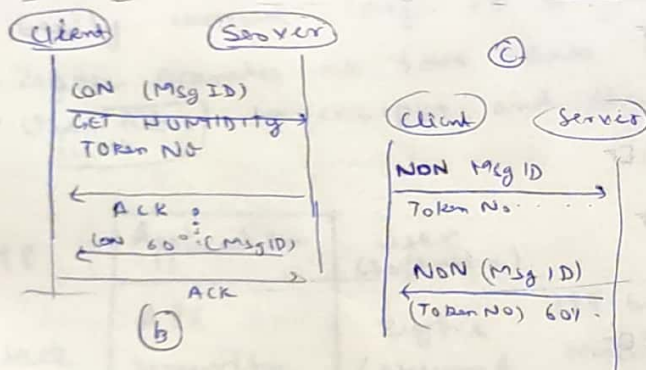 Client Server
CON (Msg ID)
GET HUMIDITY
TOKEN NO
ACK
CON 60% (Msg ID)
ACK
(b)
(c)
Client Server
NON Msg ID
Token No.....
NON (Msg ID)
(Token NO) 60%.